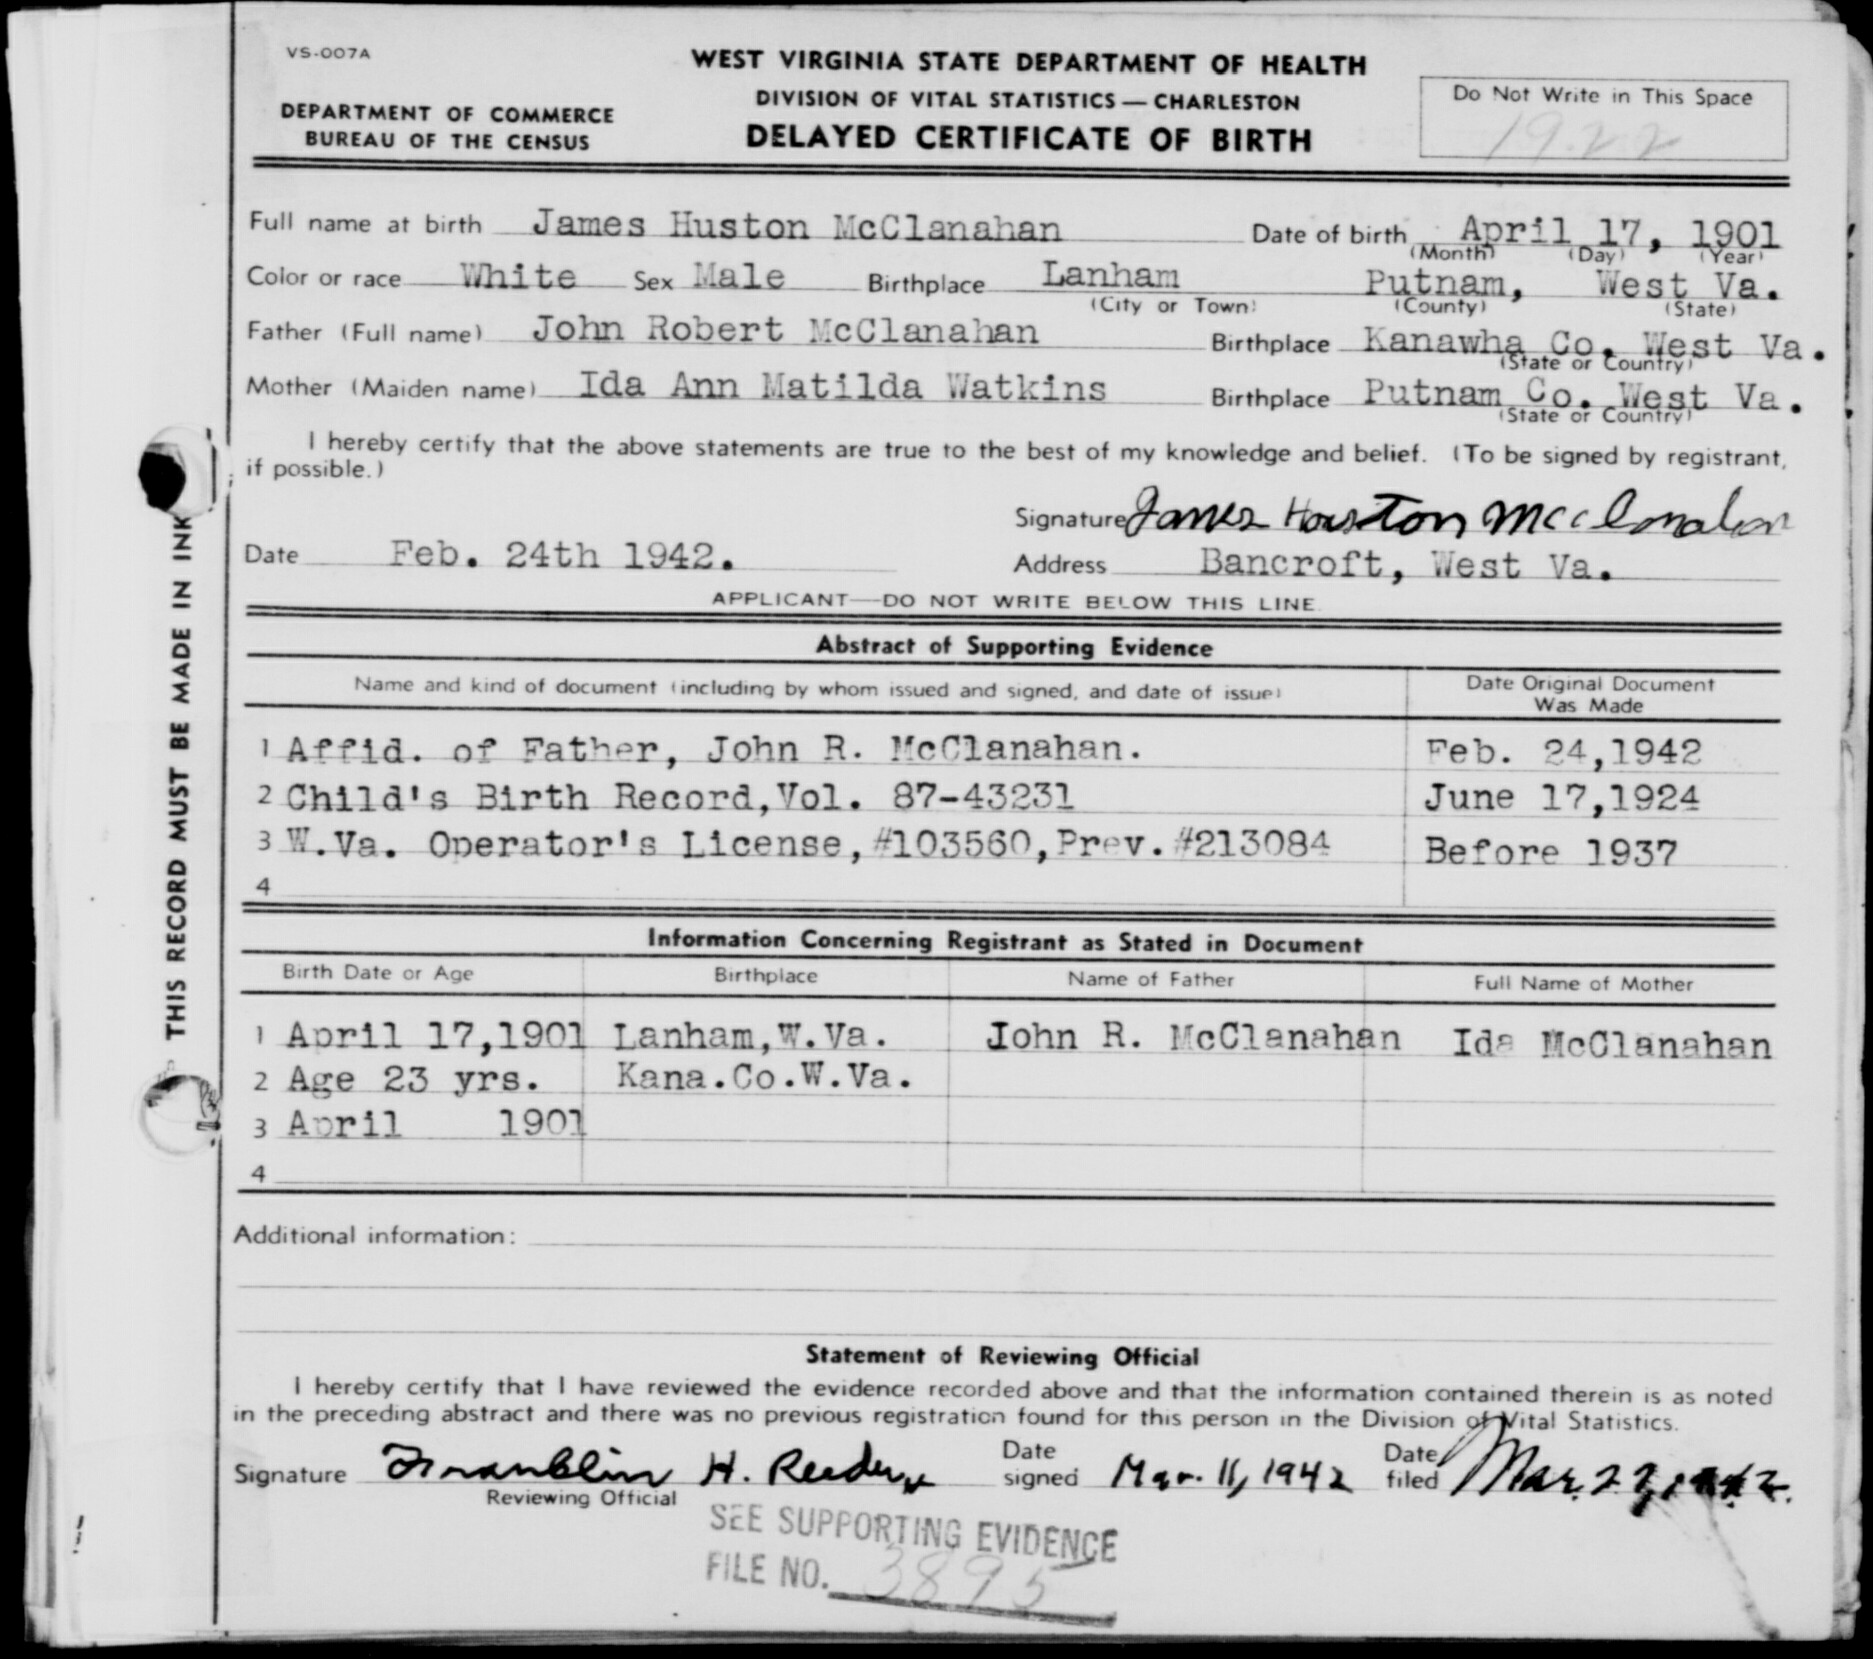 VS-007A
WEST VIRGINIA STATE DEPARTMENT OF HEALTH
DEPARTMENT OF COMMERCE
BUREAU OF THE CENSUS
DIVISION OF VITAL STATISTICS — CHARLESTON
DELAYED CERTIFICATE OF BIRTH
Do Not Write in This Space
1922
Full name at birth James Huston McClanahan Date of birth April 17, 1901
(Month) (Day) (Year)
Color or race White Sex Male Birthplace Lanham Putnam, West Va.
(City or Town) (County) (State)
Father (Full name) John Robert McClanahan Birthplace Kanawha Co. West Va.
(State or Country)
Mother (Maiden name) Ida Ann Matilda Watkins Birthplace Putnam Co. West Va.
(State or Country)
I hereby certify that the above statements are true to the best of my knowledge and belief. (To be signed by registrant,
if possible.)
Signature James Houston McClanahan
Date Feb. 24th 1942. Address Bancroft, West Va.
APPLICANT—DO NOT WRITE BELOW THIS LINE
Abstract of Supporting Evidence
Name and kind of document (including by whom issued and signed, and date of issue) Date Original Document
Was Made
1 Affid. of Father, John R. McClanahan. Feb. 24,1942
2 Child's Birth Record,Vol. 87-43231 June 17,1924
3 W.Va. Operator's License,#103560,Prev.#213084 Before 1937
4
Information Concerning Registrant as Stated in Document
Birth Date or Age Birthplace Name of Father Full Name of Mother
1 April 17,1901 Lanham,W.Va. John R. McClanahan Ida McClanahan
2 Age 23 yrs. Kana.Co.W.Va.
3 April 1901
4
Additional information:
Statement of Reviewing Official
I hereby certify that I have reviewed the evidence recorded above and that the information contained therein is as noted
in the preceding abstract and there was no previous registration found for this person in the Division of Vital Statistics.
Signature Franklin H. Reeder Date signed Mar. 11, 1942 Date filed Mar. 27, 1942.
Reviewing Official
SEE SUPPORTING EVIDENCE
FILE NO. 3895
THIS RECORD MUST BE MADE IN INK